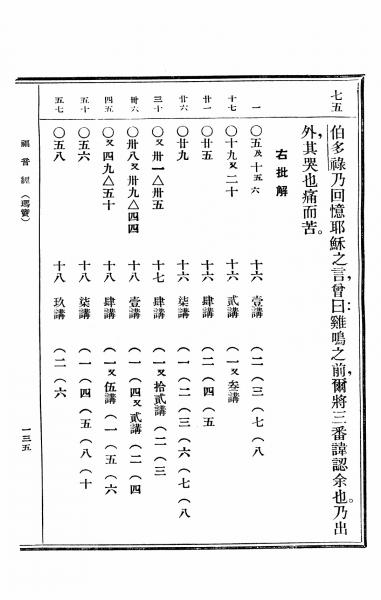 七五
伯多祿乃回憶耶穌之言,曾曰:雞鳴之前,爾將三番諱認余也。乃出
外,其哭也痛而苦。
右批解
一 〇五及十五六 十六 壹講 (二(三(七(八
十七 〇十九又二十 十六 貳講 (一又叁講
廿一 〇廿五 十六 肆講 (二(四(五
廿六 〇廿九 十六 柒講 (一(二(三(六(七(八
三十 〇又卅一△卅五 十七 肆講 (一又拾貳講(二(三
卅六 〇卅八又卅九△四四 十八 壹講 (一(四又貳講(二(四
四五 〇又四九△五十 十八 肆講 (一又伍講(一(五(六
五十 〇五六 十八 柒講 (一(四(五(八(十
五七 〇五八 十八 玖講 (二(六
福音經(瑪竇)
一三五